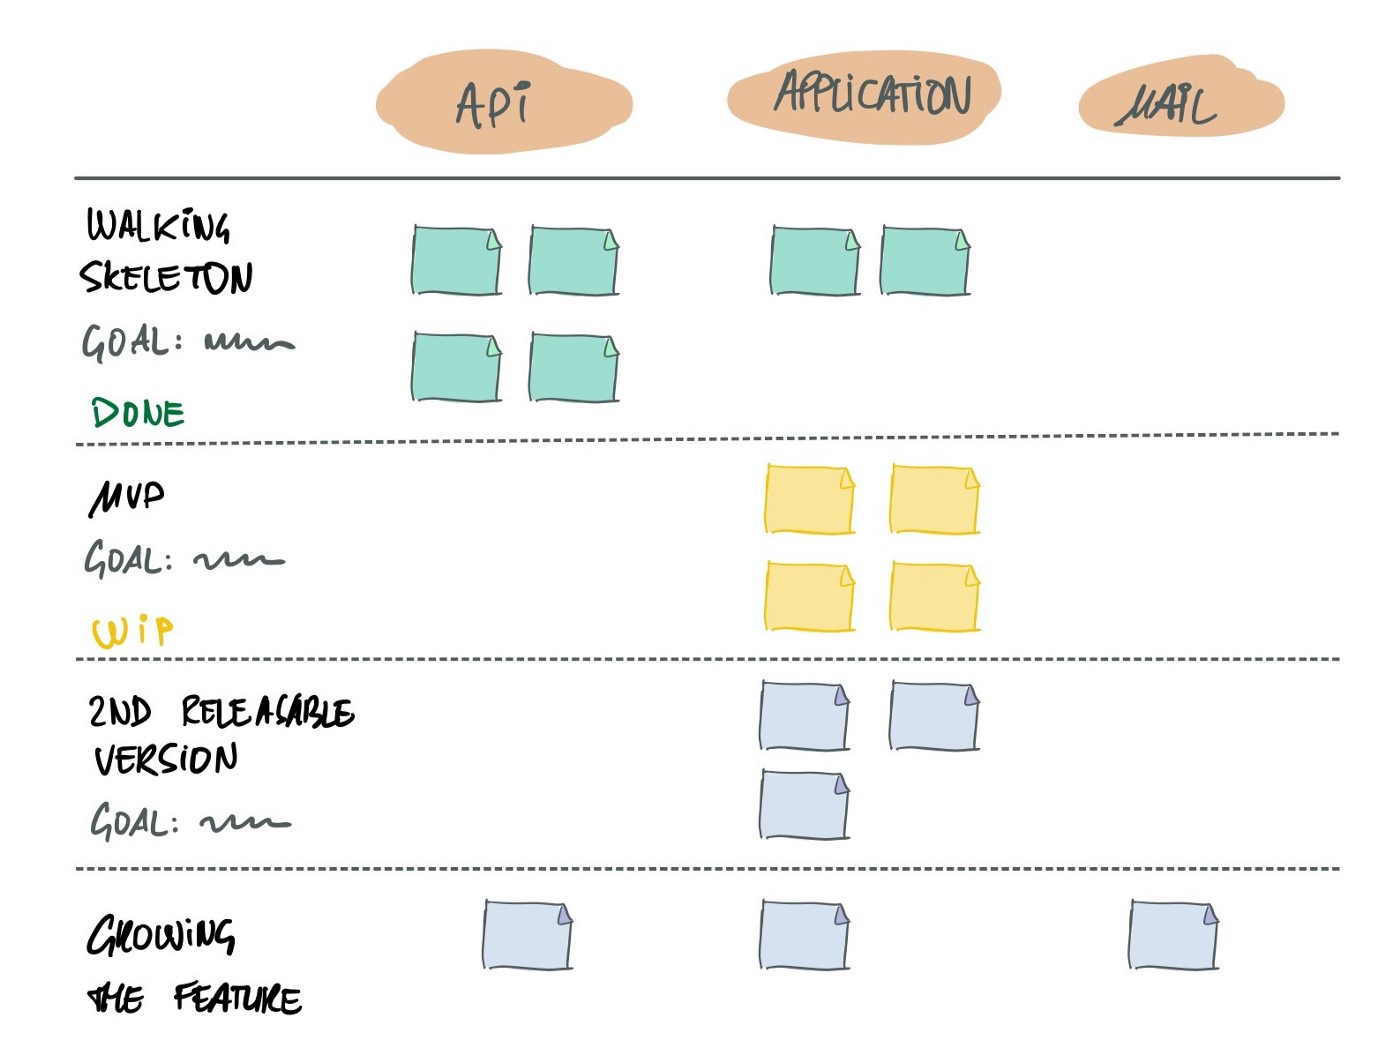 API
APPLICATION
MAIL
WALKING
SKELETON
GOAL:
DONE
MVP
GOAL:
WIP
2ND RELEASABLE
VERSION
GOAL:
GROWING
THE FEATURE